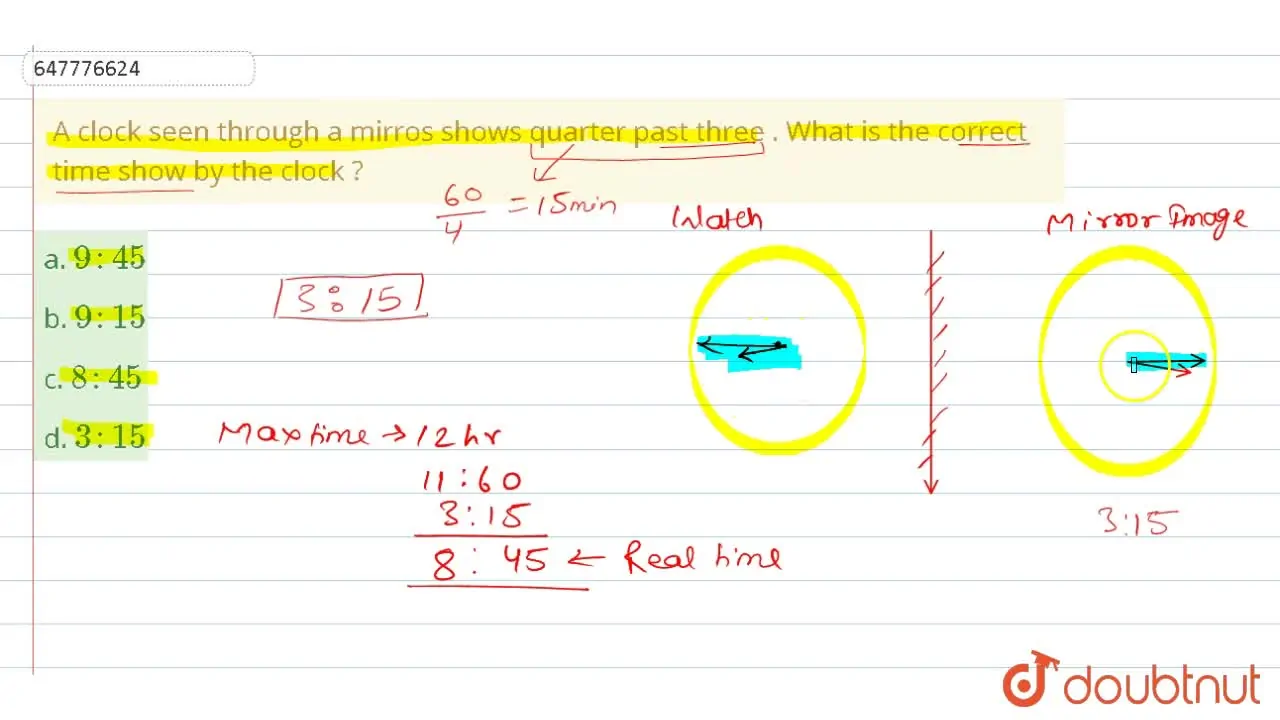 647776624
A clock seen through a mirros shows quarter past three . What is the correct
time show by the clock ?
60
4
= 15 min
Watch
Mirror Image
a. 9 : 45
b. 9 : 15
c. 8 : 45
d. 3 : 15
3 : 15
Max time → 12 hr
11 : 60
3 : 15
8 : 45 ← Real time
3:15
doubtnut